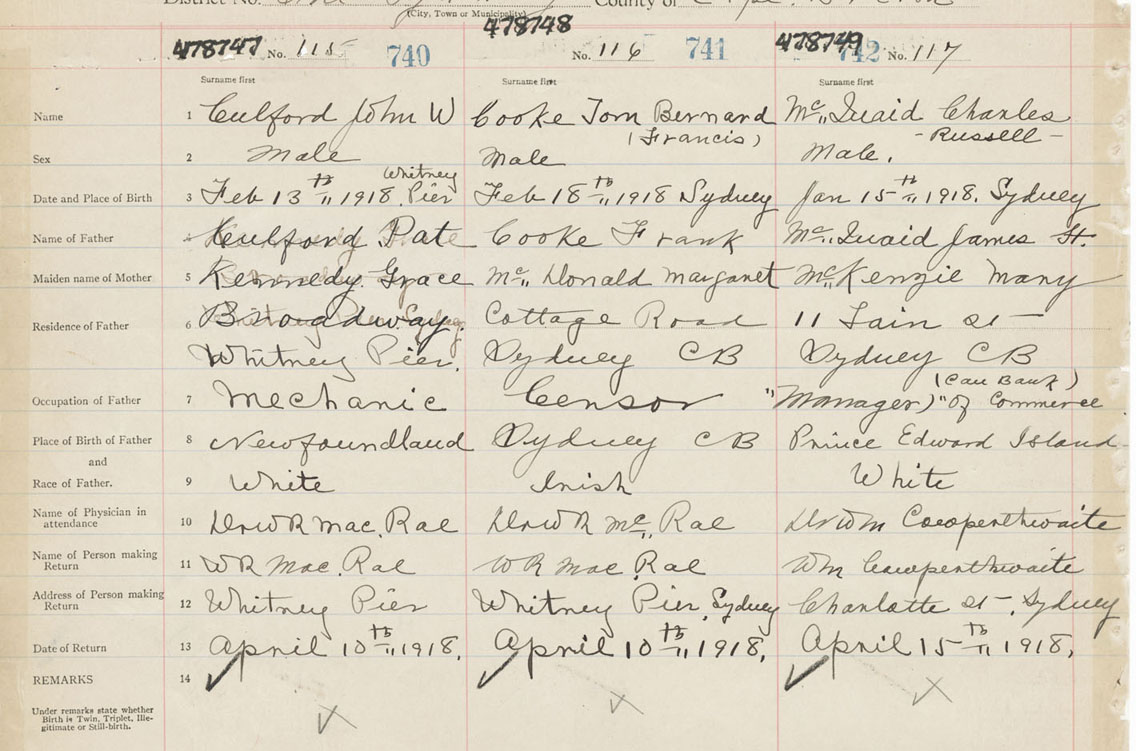 District No. County of
(City, Town or Municipality)
478747 No. 115 740 478748 No. 116 741 478749 742 No. 117
Surname first Surname first Surname first
Name 1 Culford John W Cooke Tom Bernard Mc Quaid Charles
(Francis) - Russell -
Sex 2 Male Male Male.
Whitney
Date and Place of Birth 3 Feb 13th 1918. Pier Feb 18th 1918 Sydney Jan 15th 1918. Sydney
Name of Father 4 Culford Pate Cooke Frank Mc Quaid James St.
Maiden name of Mother 5 Kennedy Grace Mc Donald Margaret McKenzie Mary
Residence of Father 6 Broadway. Cottage Road 11 St
Whitney Pier. Sydney CB Sydney CB
(Can Bank)
Occupation of Father 7 Mechanic Censor "Manager)" Of Commerce
Place of Birth of Father 8 Newfoundland Sydney CB Prince Edward Island
and
Race of Father. 9 White Irish White
Name of Physician in
attendance 10 Dr W R Mac. Rae Dr W R Mc Rae Dr Wm Cowperthwaite
Name of Person making
Return 11 W R Mac. Rae W R Mac. Rae Wm Cowperthwaite
Address of Person making
Return 12 Whitney Pier Whitney Pier, Sydney Charlotte St, Sydney
Date of Return 13 April 10th 1918. April 10th 1918. April 15th 1918.
REMARKS 14
Under remarks state whether
Birth is Twin, Triplet, Ille-
gitimate or Still-birth.